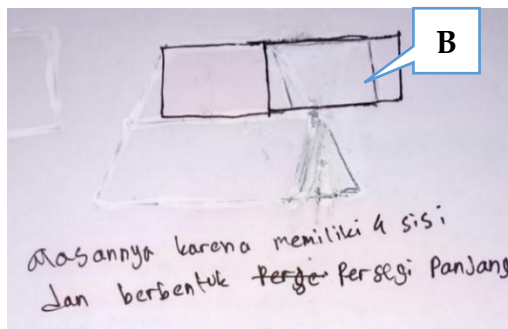 B
alasannya karena memiliki 4 sisi
dan berbentuk Perge Persegi Panjang